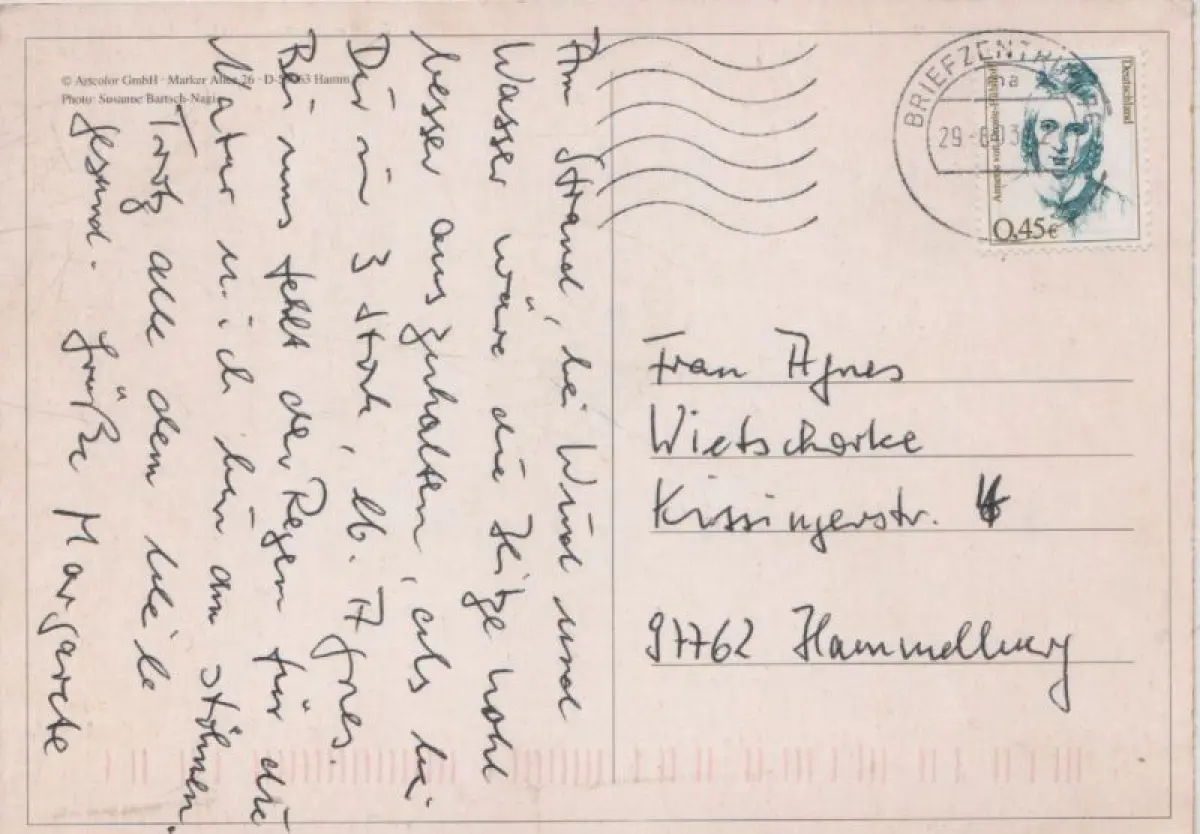 © Artcolor GmbH · Marker Allee 26 · D- 63 Hamm
Photo: Susanne Bartsch-Nagi
Am Strand, bei Wind und
Wasser wäre die Hitze wohl
besser auszuhalten, als bei
Dir im 3 Stock, lb. Agnes.
Bei uns fehlt der Regen für die
Natur u. ich bin am stöhnen.
Trotz alle dem bleibe
gesund. Grüße Margarete
BRIEFZENTRUM
na
29.-6.03
Deutschland
Annette von Droste-Hülshoff
0,45€
Frau Agnes
Wietscharke
Kissingerstr.
97762 Hammelburg